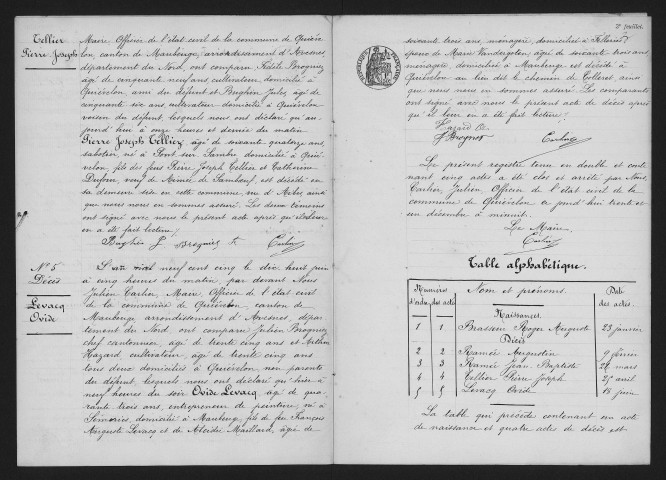 Tellier
Pierre Joseph
Maire Officier de l'état civil de la commune de Quiévelon,
canton de Maubeuge, arrondissement d'Avesnes,
département du Nord, ont comparu Fidèle Brognez
âgé de cinquante neuf ans cultivateur domicilié à
Quiévelon, ami du défunt et Bughin Jules, âgé de
cinquante six ans cultivateur domicilié à Quiévelon
voisin du défunt, lesquels nous ont déclaré qu'au
jourd'hui à onze heures et demie du matin
Pierre Joseph Tellier âgé de soixante quatorze ans,
sabotier, né à Pont sur Sambre domicilié à Quié
velon, fils des feus Pierre Joseph Tellier et Catherine
Dufour, veuf de Aimée est décédé en
sa demeure sise en cette commune ainsi
que nous nous en sommes assuré. Les deux témoins
ont signé avec nous le présent acte après que lecture leur
en a été fait lecture.
Bughin J Brognez F. Carlier
N° 5
Décès
Levacq
Ovide
L'an mil neuf cent cinq le dix huit juin
à cinq heures du matin, par devant Nous
Julien Carlier, Maire, Officier de l'état civil
de la commune de Quiévelon, canton de
Maubeuge arrondissement d'Avesnes, dépar
tement du Nord, ont comparu Julien Brognez
chef cantonnier, âgé de trente cinq ans et Arthur
Hazard cultivateur, âgé de trente cinq ans
tous deux domiciliés à Quiévelon, non parents
du défunt, lesquels nous ont déclaré qu'hier à
neuf heures du soir Ovide Levacq âgé de qua
rante trois ans, entrepreneur de peinture, né à
domicilié à Maubeuge, fils de feu François
Auguste Levacq et de Alcidie Maillard, âgée de
2e feuillet.
soixante trois ans ménagère, domiciliée à
époux de Marie Vandergoten, âgée de soixante trois ans,
ménagère, domiciliée à Maubeuge est décédé à
Quiévelon au lieu dit le chemin de Colleret ainsi
que nous nous en sommes assuré. Les comparants
ont signé avec nous le présent acte de décès après
qu'il leur en a été fait lecture.
Hazard A.
J Brognez Carlier
Le présent registre tenu en double et conte
nant cinq actes a été clos et arrêté par Nous,
Carlier, Julien, Officier de l'état civil de la
commune de Quiévelon ce jourd'hui trente et
un décembre à minuit.
Le Maire
Carlier
Table alphabétique.
Numéros Nom et prénoms. Date
d'ordre des actes des actes.
Naissances.
1 1 Brasseur Roger Auguste 23 janvier
Décès
2 2 Ramée Augustin 9 février
3 3 Ramée Jean Baptiste 26 mars
4 4 Tellier Pierre Joseph 25 avril
5 5 Levacq Ovide 18 juin
La table qui précède contenant un acte
de naissance et quatre actes de décès est